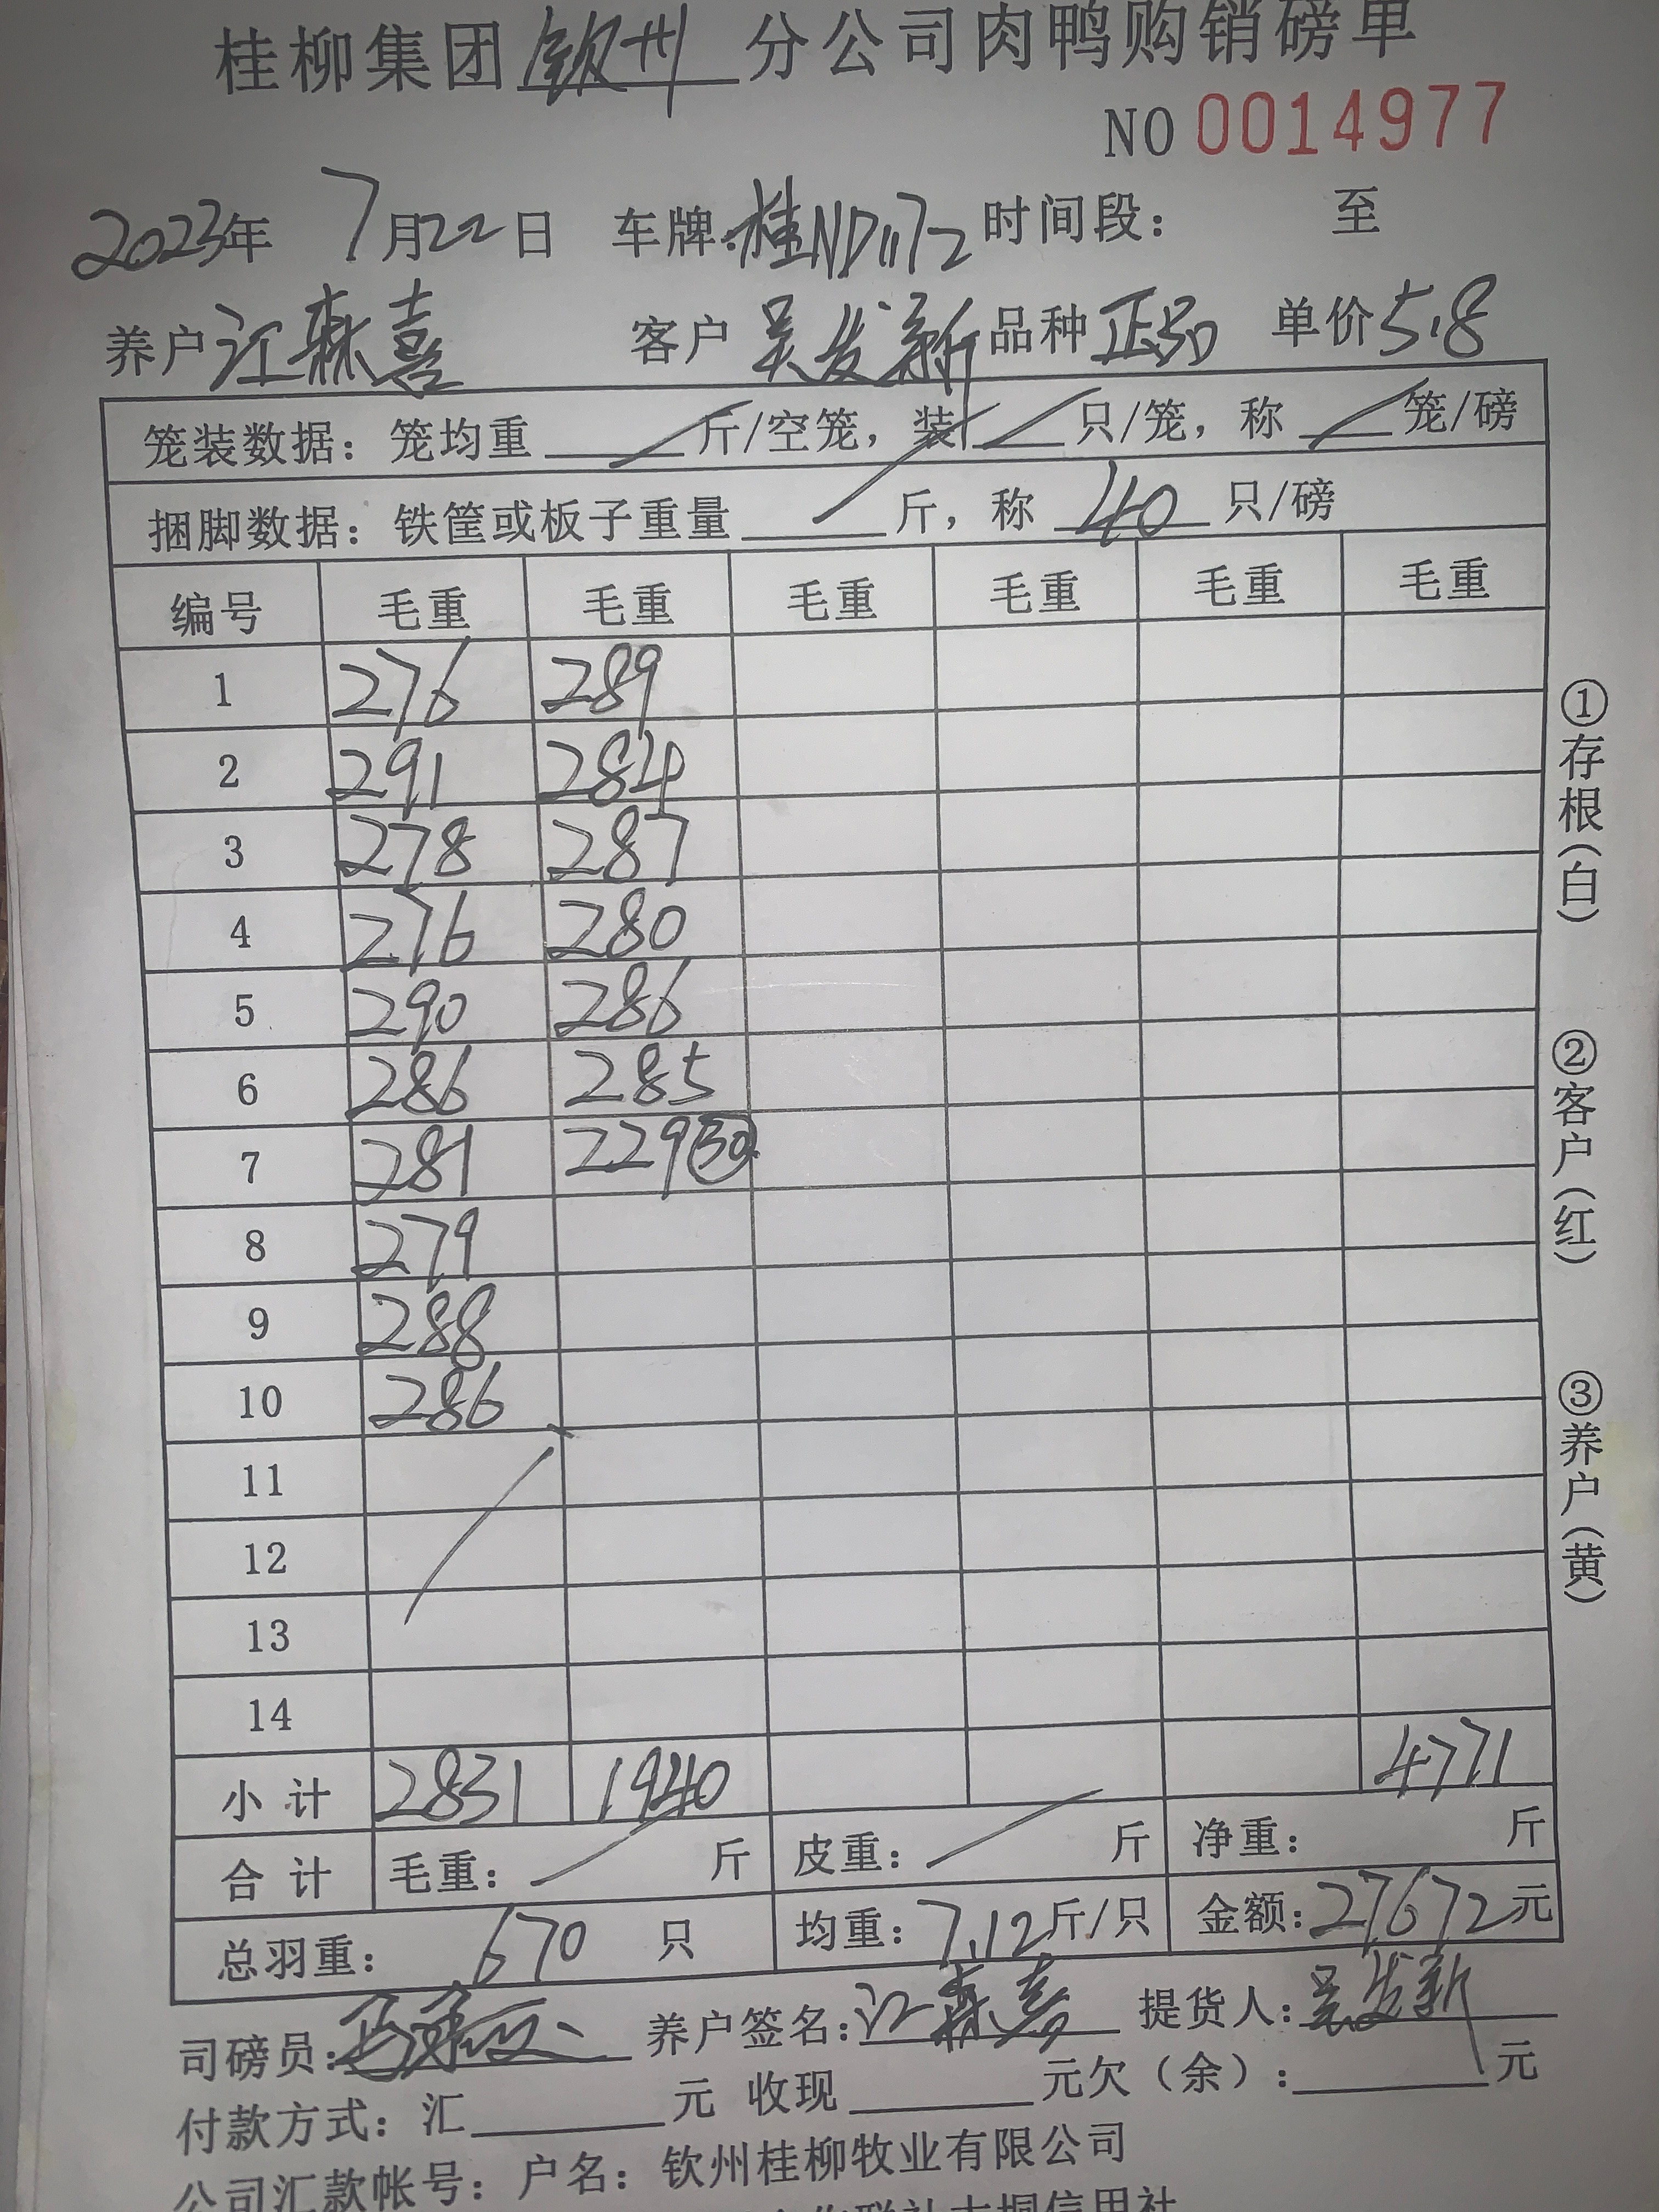 桂柳集团钦州分公司肉鸭购销磅单
NO 0014977
2023年 7月22日 车牌:桂ND1172 时间段: 至
养户 江森喜 客户 吴发新 品种 正品 单价 5.8
笼装数据: 笼均重 斤/空笼, 装 只/笼, 称 笼/磅
捆脚数据: 铁筐或板子重量 斤, 称 40 只/磅
编号 毛重 毛重 毛重 毛重 毛重 毛重
1 276 289
2 291 284
3 278 287
4 276 280
5 290 286
6 286 285
7 281 229 (30)
8 279
9 288
10 286
11
12
13
14
小计 2831 1940 4771
合计 毛重: 斤 皮重: 斤 净重: 斤
总羽重: 670 只 均重: 7.12 斤/只 金额: 27672 元
司磅员: 养户签名: 江森喜 提货人: 吴发新
付款方式: 汇 元 收现 元欠(余): 元
公司汇款帐号: 户名: 钦州桂柳牧业有限公司
①存根(白)
②客户(红)
③养户(黄)